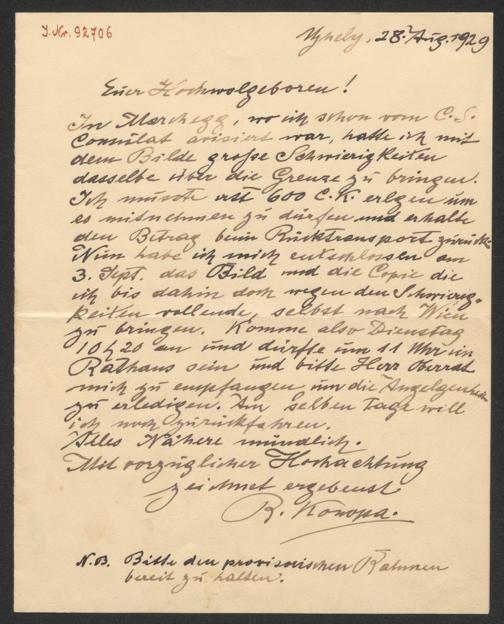 J.Nr. 92706
Uhely, 28. Aug. 1929
Euer Hochwolgeboren!
In Marchegg, wo ich schon vom C.S.
Consulat avisiert war, hatte ich mit
dem Bilde grosse Schwierigkeiten
dasselbe über die Grenze zu bringen.
Ich musste erst 600 C.K. erlgen um
es mitnehmen zu dürfen und erhalte
den Betrag beim Rücktransport zurück.
Nun habe ich mich entschlossen am
3. Sept. das Bild und die Copie die
ich bis dahin doch wegen den Schwierig-
keiten vollende, selbst nach Wien
zu bringen. Komme also Dienstag
10h20 an und dürfte um 11 Uhr im
Rathaus sein und bitte Herr Oberrat
mich zu empfangen, um die Angelgenheiten
zu erledigen. Am selben Tage will
ich noch zurückfahren.
Alles Nähere mündlich.
Mit vorzüglicher Hochachtung
zeichnet ergebenst
R. Konopa.
N.B. Bitte den provisorischen Rahmen
bereit zu halten.